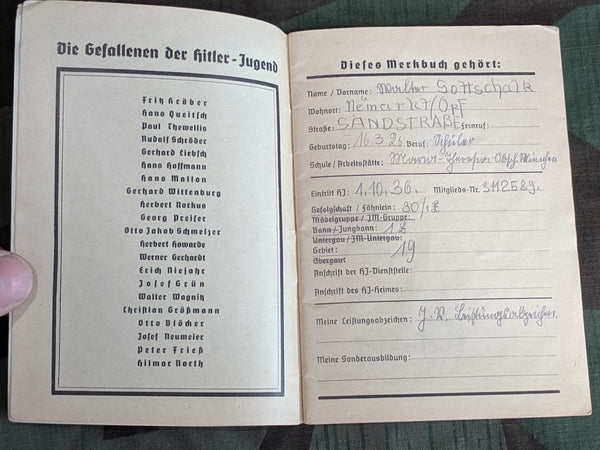 Die Gefallenen der Hitler-Jugend
Fritz Kröber
Hans Queitsch
Paul Thewellis
Rudolf Schröder
Gerhard Liebsch
Hans Hoffmann
Hans Mallon
Gerhard Wittenburg
Herbert Norkus
Georg Preiser
Otto Jakob Schmelzer
Herbert Howarde
Werner Gerhardt
Erich Niejahr
Josef Grün
Walter Wagnitz
Christian Größmann
Otto Blöcher
Josef Neumeier
Peter Frieß
Hilmar North
Dieses Merkbuch gehört:
Name / Vorname: Walter Gottschalk
Wohnort: Neumarkt/Opf
Straße: SANDSTRAßE Fernruf:
Geburtstag: 16.3.26 Beruf: Schüler
Schule / Arbeitsstätte:
Eintritt HJ: 1.10.36. Mitglieds-Nr. 3112589.
Gefolgschaft / Fähnlein: 30/1L
Mädelgruppe / JM-Gruppe:
Bann / Jungbann: 1L
Untergau / JM-Untergau:
Gebiet: 19
Obergau:
Anschrift der HJ-Dienststelle:
Anschrift des HJ-Heimes:
Meine Leistungsabzeichen: J.V. Leistungsabzeichen
Meine Sonderausbildung: